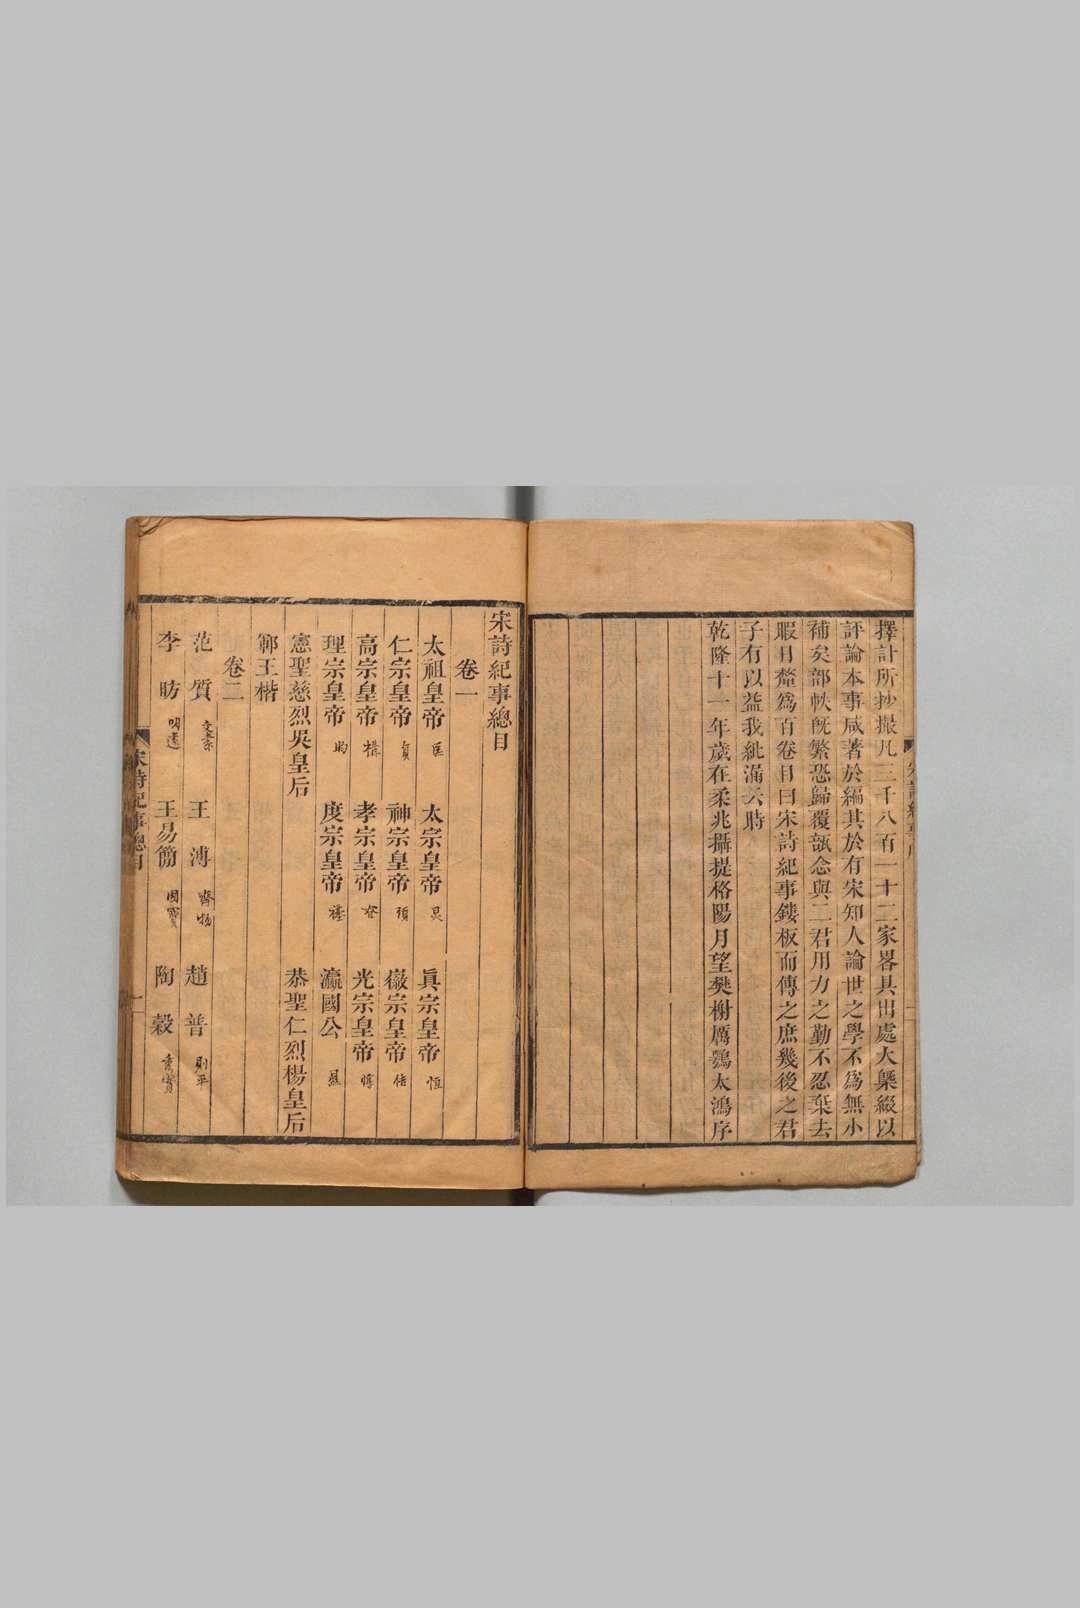 擇計所抄撮凡三千八百一十二家畧具出處大槩綴以
評論本事咸著於編其於有宋知人論世之學不為無小
補矣部帙旣繁恐歸覆瓿念與二君用力之勤不忍棄去
暇日釐爲百卷目曰宋詩紀事鏤板而傳之庶幾後之君
子有以益我紕漏云時
乾隆十一年歲在柔兆攝提格陽月望樊榭厲鶚太鴻序
宋詩紀事總目
卷一
太祖皇帝 匡 太宗皇帝 炅 眞宗皇帝 恒
仁宗皇帝 神宗皇帝 頊 徽宗皇帝 佶
高宗皇帝 構 孝宗皇帝 昚 光宗皇帝 惇
理宗皇帝 昀 度宗皇帝 禥 瀛國公 㬎
憲聖慈烈吳皇后 恭聖仁烈楊皇后
鄆王楷
卷二
范質 文素 王溥 齊物 趙普 則平
李昉 明遠 王易簡 國寶 陶穀 秀實
宋詩紀事總目